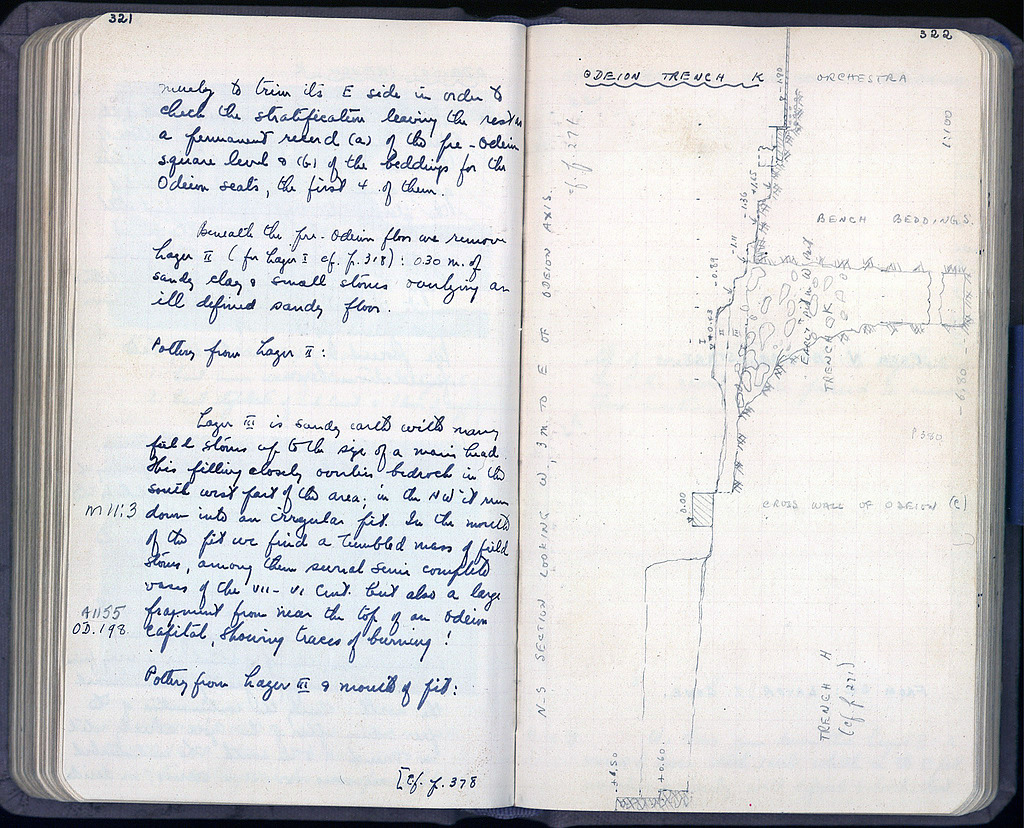 321
merely to trim its E side in order to
check the stratification leaving the rest as
a permanent record (a) of the pre-Odeion
square level & (b) of the beddings for the
Odeion seats, the first 4 of them.
Beneath the pre-Odeion floor we remove
Layer II (for Layer I cf. p. 318): 0.30 m. of
sandy clay & small stones overlying an
ill defined sandy floor.
Pottery from Layer II:
Layer III is sandy earth with many
field stones up to the size of a man's head.
This filling closely overlies bedrock in the
south west part of the area; in the NW it runs
M 11:3
down into an irregular pit. In the mouth
of the pit we find a tumbled mass of field
stones, among them several semi complete
vases of the VII-VI cent. but also a large
A1155
OD. 198.
fragment from near the top of an Odeion
capital, showing traces of burning!
Pottery from Layer III & mouth of pit:
[Cf. p. 378
322
ODEION TRENCH K
ORCHESTRA
cf. p. 276
-1.90
BENCH BEDDINGS
-1.65
-1.36
-1.11
-0.89
+0.63
I
II
III
EARLY PIT IN W part
TRENCH K
-6.80
P 380
0.00
CROSS WALL OF ODEION (C)
N-S SECTION LOOKING W, 3 M TO E OF ODEION AXIS.
TRENCH H
(cf. p. 271)
+.50
+0.60